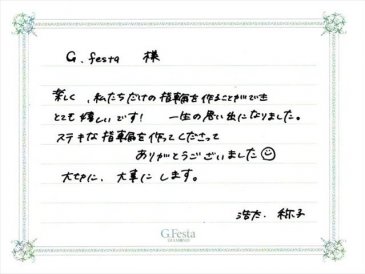 G.festa 様
楽しく、私たちだけの指輪を作ることができ
とても嬉しいです! 一生の思い出になりました。
ステキな指輪を作ってくださって
ありがとうございました☺
大切に、大事にします。
浩太. 称子
G.Festa